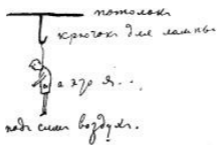 потолок
крючок для лампы
а это я...
под ... воздух.